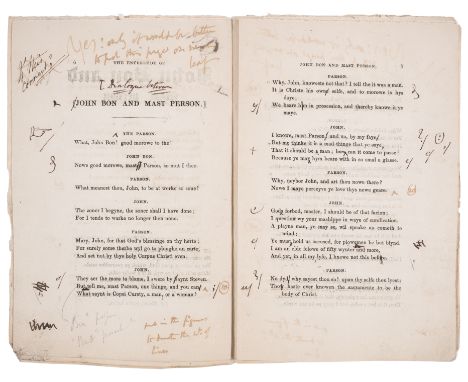 Yes! only it would be better
to put this page on new
leaf
4
THE ENTERLUDE OF
A Dialogue between
[JOHN BON AND MAST PERSON.]
THE PARSON.
What, John Bon! good morowe to the
JOHN BON.
Now good morowe, mast Parson, so mut I thee.
PARSON.
What meanest thou, John, to be at worke so sone?
JOHN.
The zoner I begyne, the zoner shall I have done;
For I tende to warke no longer then none.
PARSON.
Mary, John, for that God's blessinge on thy herte;
For surely some therbe wyl go to ploughe an carte,
And set not by thys holy Corpus Christi even.
JOHN.
They aer the more to blame, I swere by saynt Steven.
But tell me, mast Parson, one thinge, and you can,
What saynt is Copsi Cursty, a man, or a woman?
put in the figures
to denote the No of
lines
JOHN BON AND MAST PERSON.
5
PARSON.
Why, John, knoweste not that? I tell the it was a man.
It is Christe his own selfe, and to morowe is hys
daye.
We beare hym in prosession, and thereby knowe it ye
maye.
JOHN.
I knowe, mast Parson, and na, by my faye;
But me thinke it is a mad thinge that ye saye,
That it should be a man; how can it come to passe?
Because ye maye hym beare with in so smal a glasse.
PARSON.
Why, neybor John, and art thou nowe there?
Nowe I maye perceyve ye love thys newe geare.
JOHN.
God's forbod, master. I should be of that facion;
I question wy your mashippe in waye of cumlication.
A playne man, ye may se, wil speake as cometh to
mind;
Ye must hold us ascused, for plowmen be but blynd.
I am an elde felowe of fifty wynter and more,
And yet, in all my lyfe, I knowe not this before.
PARSON.
No dyd! why sayest thou so? upon thy selfe thou lyest;
Thou haste ever knowen the sacramente to be the
body of Christ.